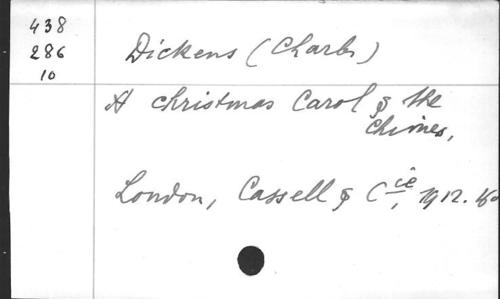 438
286
10
Dickens (Charles)
A christmas Carol & the
Chimes,
London, Cassell & Cie, 1912.